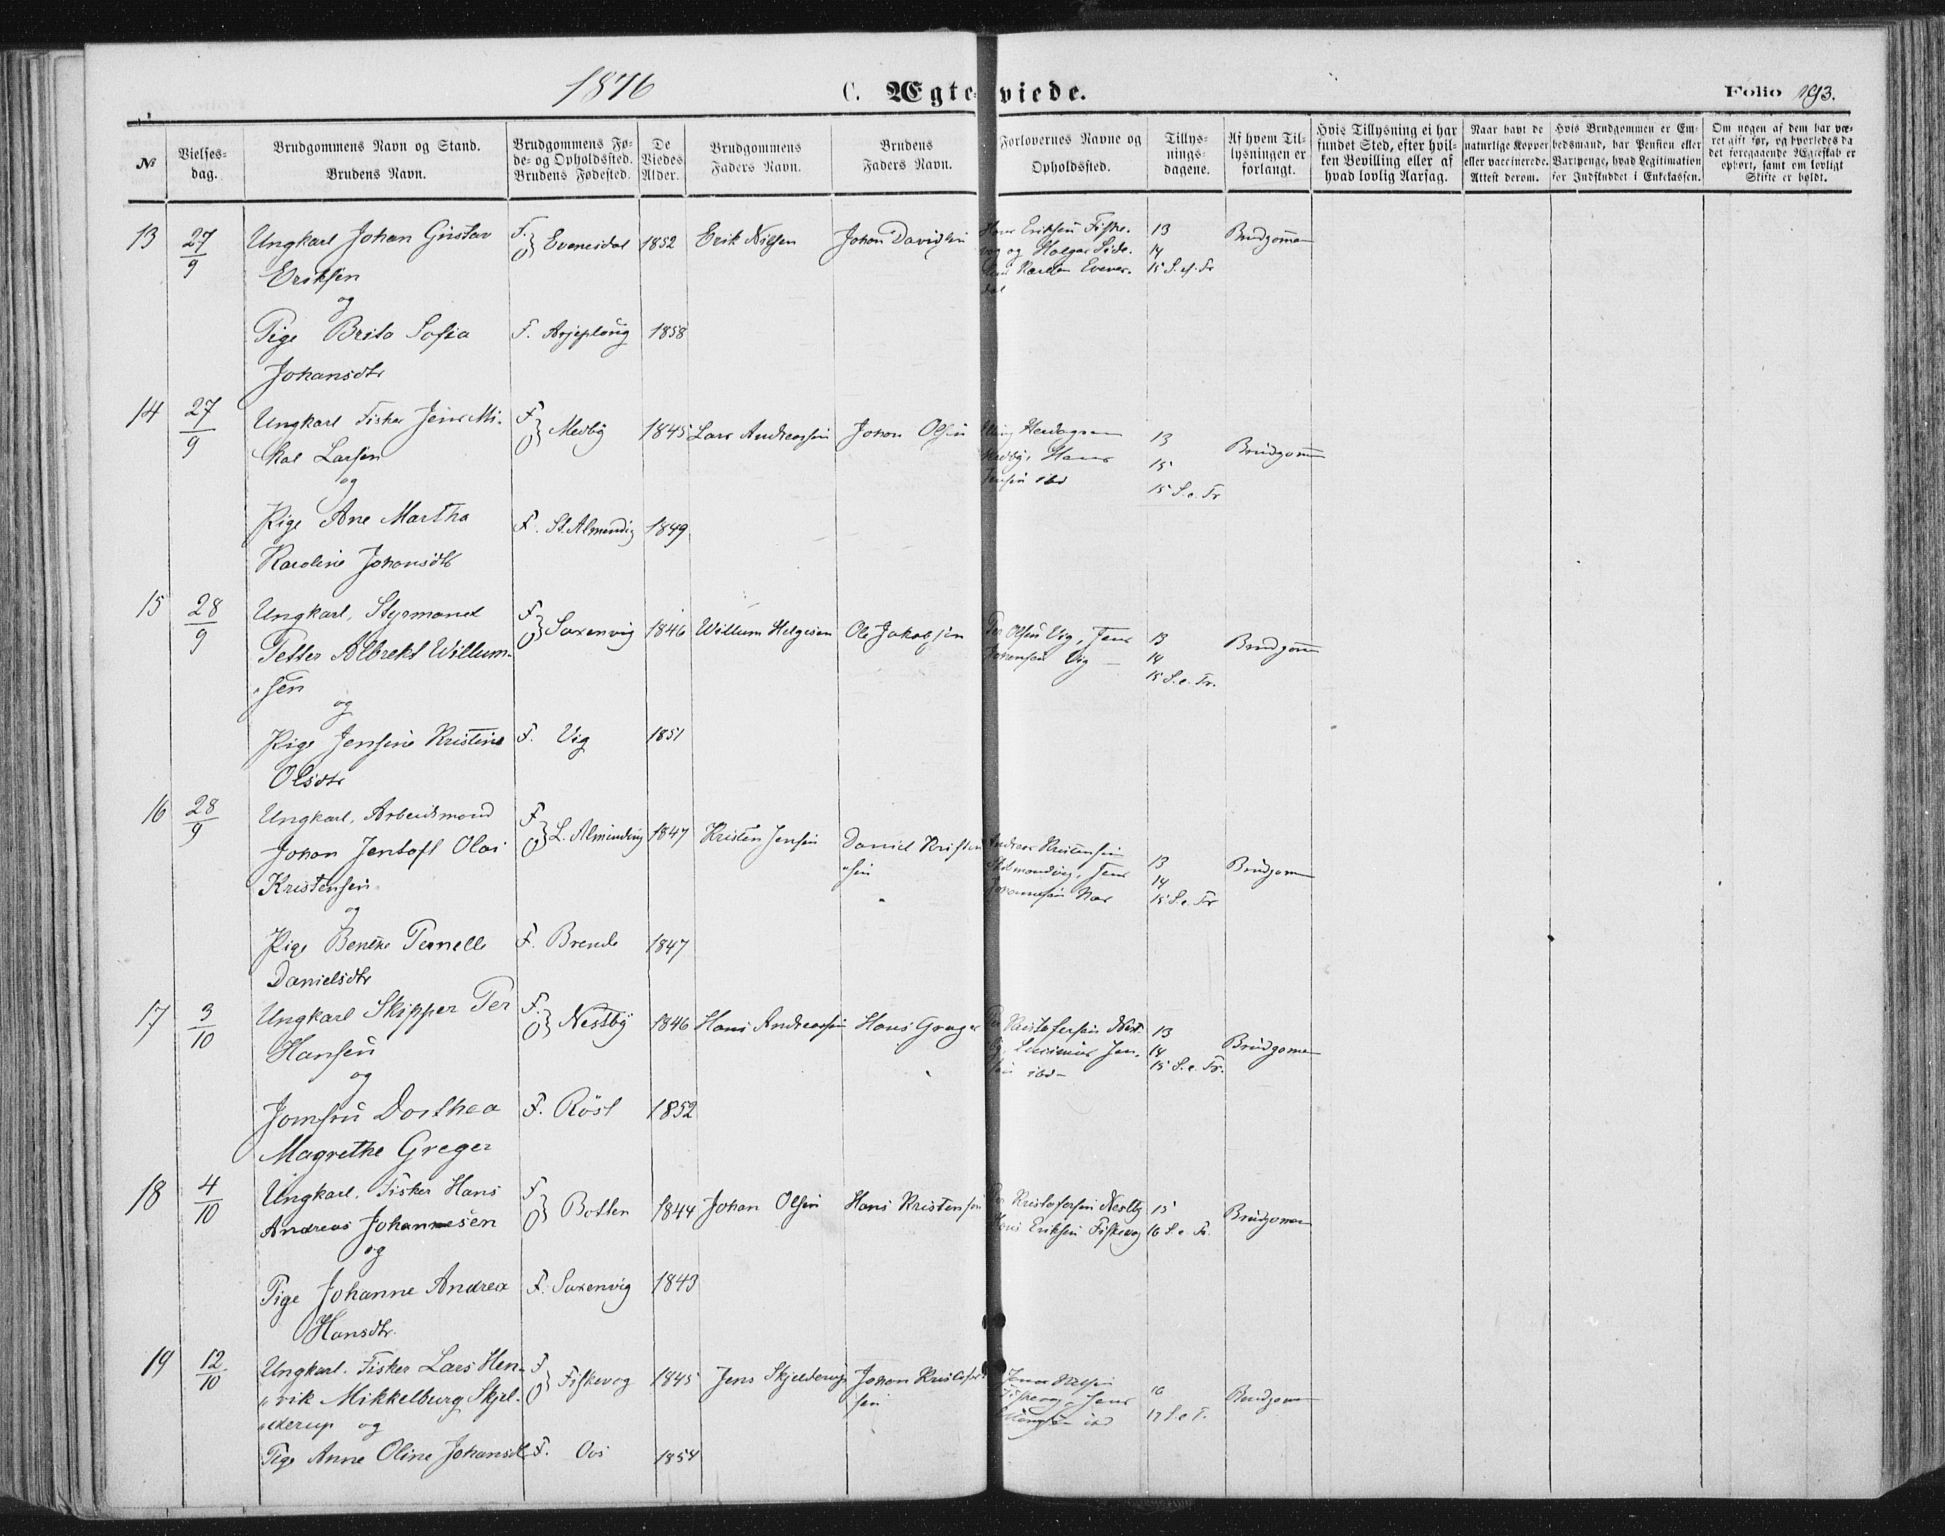 1876 C. Ægteviede. Folio 193.
№
Vielses-
dag.
Brudgommens Navn og Stand.
Brudens Navn.
Brudgommens Fø-
de- og Opholdssted.
Brudens Fødested.
De
Viedes
Alder.
Brudgommens
Faders Navn.
Brudens
Faders Navn.
Forlovernes Navne og
Opholdssted.
Tillys-
nings-
dagene.
Af hvem Til-
lysningen er
forlangt.
Hvis Tillysning ei har
fundet Sted, efter hvil-
ken Bevilling eller af
hvad lovlig Aarsag.
Naar havt de
naturlige Kopper
eller vaccinerede.
Attest derom.
Hvis Brudgommen er Em-
bedsmand, har Pension eller
Vartpenge, hvad Legitimation
for Indskuddet i Enkekassen.
Om nogen af dem har væ-
ret gift før, og hvorledes da
det foregaaende Ægteskab er
ophørt, samt om lovligt
Skifte er holdt.
13 27/9 Ungkarl Johan Gustav F. O } Evenesdal 1852 Erik Nilsen Johan Davidsen Hans Eriksen Fiske- 13 Brudgommen
Eriksen vog og Holger 14
og Evenes- 15 S. ef. Tr
dal
Pige Brita Sofia F. Arjeploug 1858
Johansdtr
14 27/9 Ungkarl Fisker Jens Mi- F O } Medby 1845 Lars Andreassen Johan Olsen 13 Brudgomm
kal Larsen Medby, Hans 15
og Jensen ibd 15 S. e. Tr
Pige Ane Martha F. St. Almending 1849
Karoline Johansdtr
15 28/9 Ungkarl, Styrmand F O } Saxenvig 1846 Willum Helgesen Ole Jakobsen Per Olsen Vig, Jens 13 Brudgomm
Petter Albrekt Willum- Johansen Vig 14
sen 15 S. e. Tr.
og
Pige Jensine Kristine F. Vig 1851
Olsdtr
16 28/9 Ungkarl, Arbeidsmand F O } L. Alminding 1847 Kristen Jensen Daniel Kristen Andreas Kristensen 13 Brudgomm
Johan Jentoft Olai sen Jens 14
Kristensen Johannesen 15 S. e. Tr
og
Pige Benike Pernelle F. Brende 1847
Danielsdtr
17 3/10 Ungkarl Skipper Per F. O } Nestby 1846 Hans Andreassen Hans Greger Per Kristofersen Nest- 13 Brudgomen
Hansen by, Jen- 14
og sen ibd 15 S. e. Tr.
Jomfru Dorthea F. Röst 1852
Magrethe Greger
18 4/10 Ungkarl. Fisker Hans F O } Botten 1844 Johan Olsen Hans Kristensen Per Kristofersen Nestby 15 Brudgomen
Andreas Johannesen Hans Eriksen Fiskevog 16 S. e. Tr.
og
Pige Johanne Andrea F. Saxenvig 1843
Hansdtr.
19 12/10 Ungkarl. Fisker Lars Hen- F O } Fiskevog 1845 Jens Skjelderup Johan Kristofer 16 Brudgomen
rik Mikkelburg Skjel- sen Fiskevog, Jens 17 S. e. T.
derup og ibd
Pige Anne Oline Johansdtr F. 1854